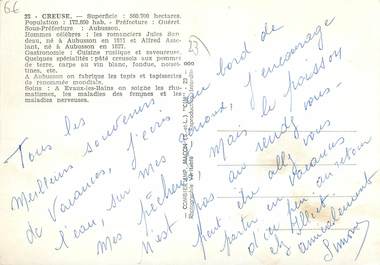 66
23
23 - CREUSE. — Superficie : 560.700 hectares.
Population : 172.650 hab. - Préfecture : Guéret.
Sous-Préfecture : Aubusson.
Hommes célèbres : les romanciers Jules San-
deau, né à Aubusson en 1811 et Alfred Asso-
lant, né à Aubusson en 1827.
Gastronomie : Cuisine rustique et savoureuse.
Quelques spécialités : pâté creusois aux pommes
de terre, carpe au vin blanc, fondue, noiset-
tines, etc.
A Aubusson on fabrique les tapis et tapisseries
de renommée mondiale.
Soins : A Evaux-les-Bains on soigne les rhu-
matismes, les maladies des femmes et les
maladies nerveuses.
Tous les
meilleurs souvenirs
de Vacances, j'écris
au bord de
l'eau, sur mes genoux, j'encourage
mes pêcheurs, mais le poisson
n'est pas au rendez vous.
peut être allez vous
partir en vacances
d'ici peu au retour
amicalement
Simone